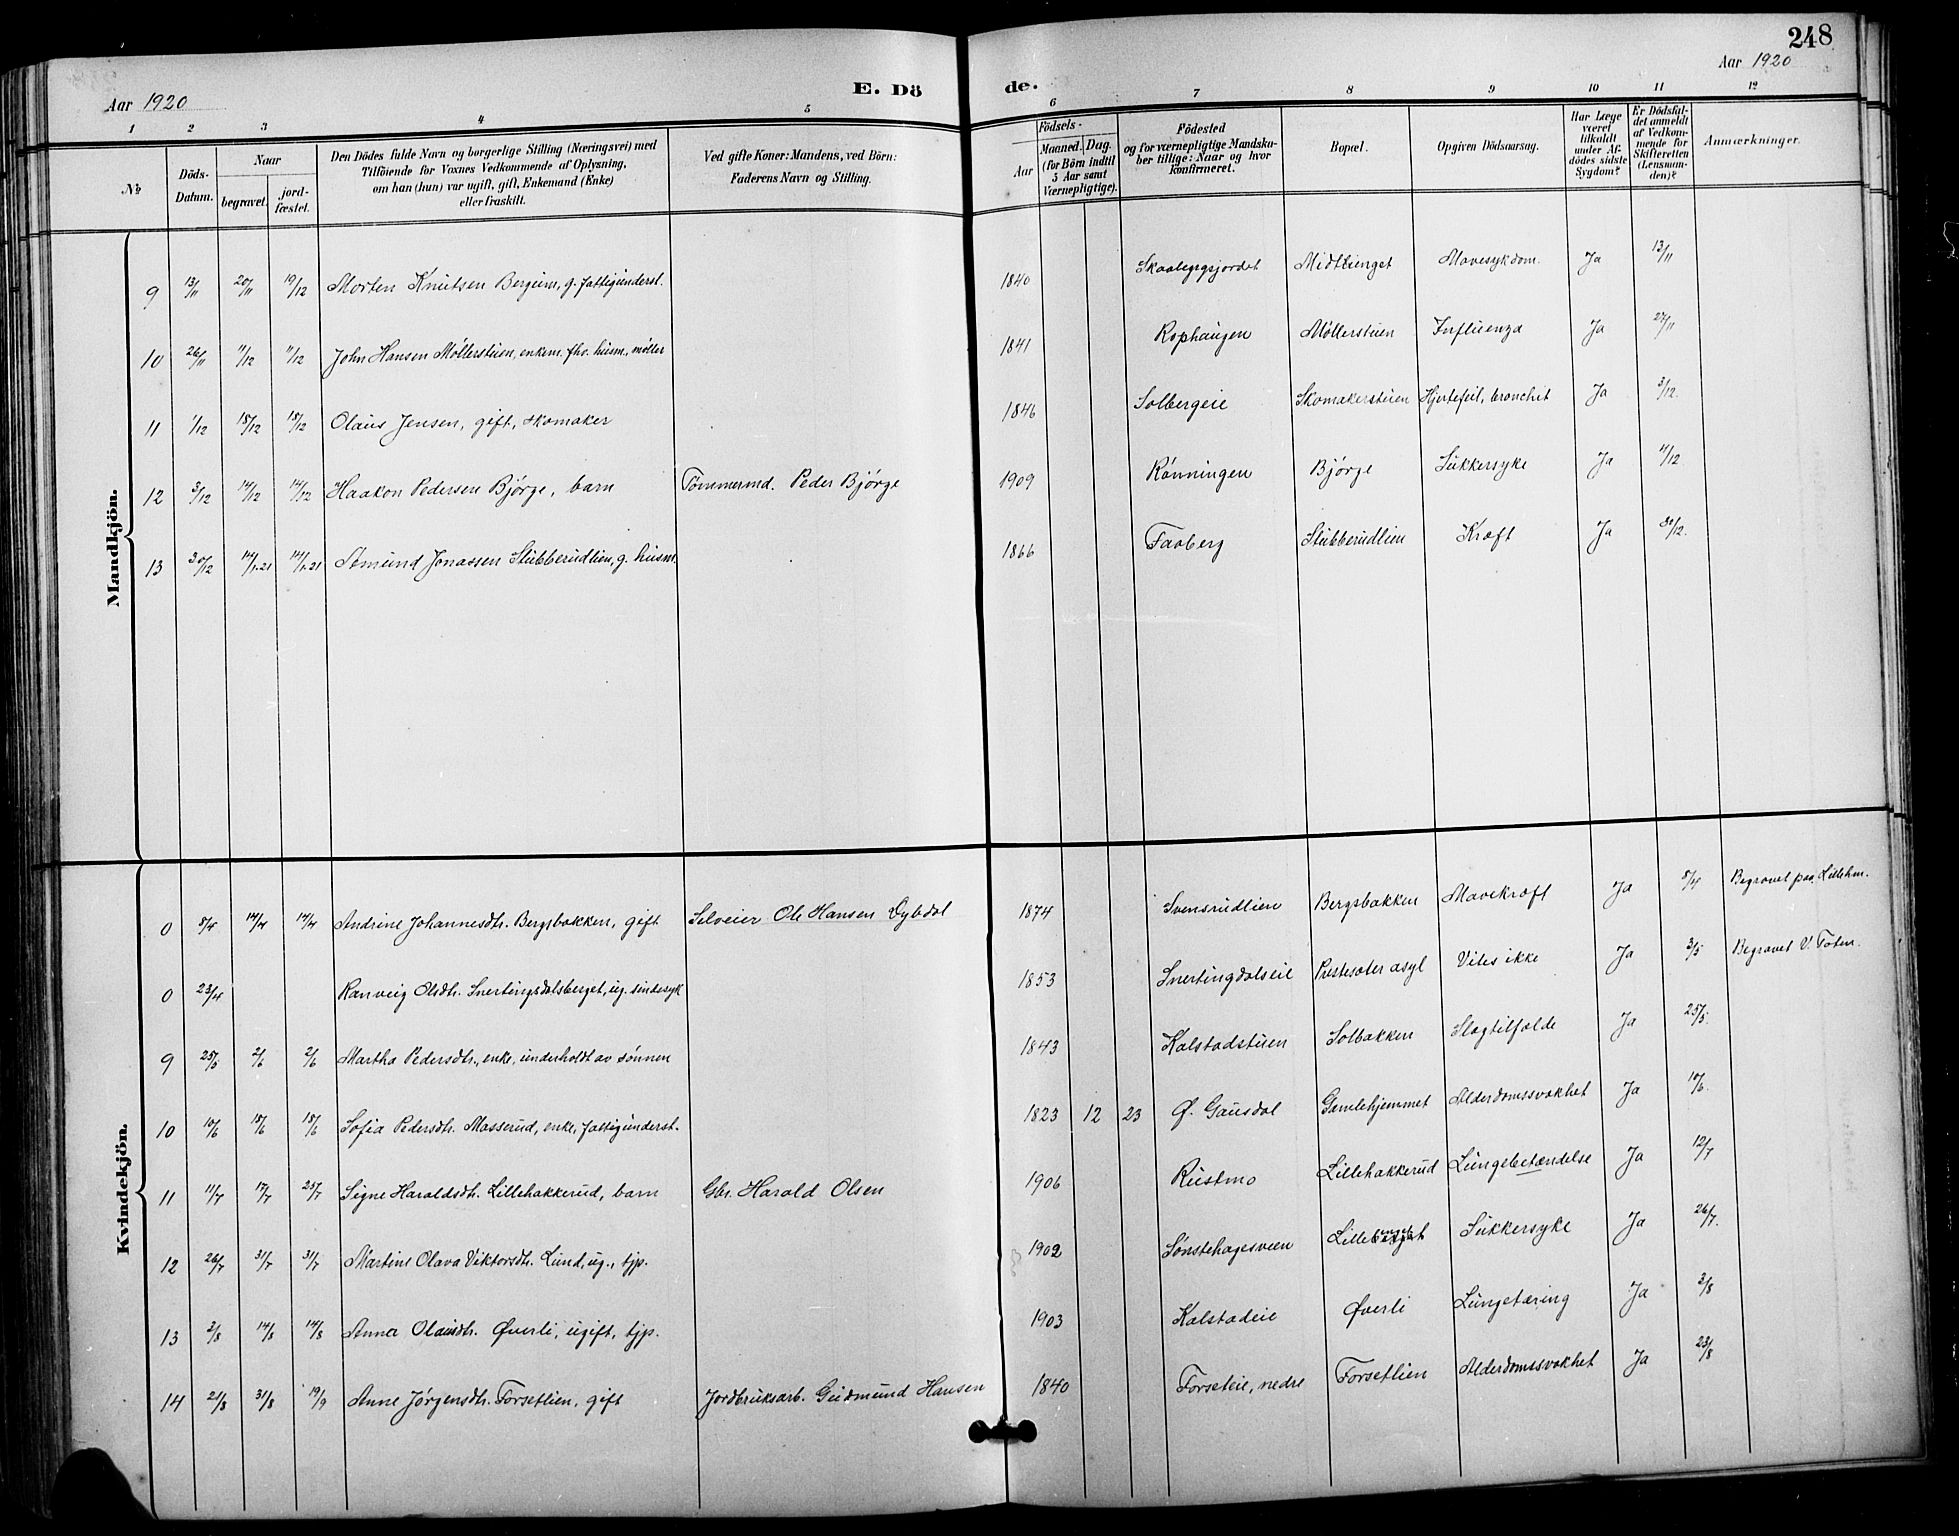 248
Aar 1920
E. Dö
de.
Aar 1920
1 2 3 4 5 6 7 8 9 10 11 12
№
Döds-Datum.
Naar
begravet.
jord-fæstet.
Den Dödes fulde Navn og borgerlige Stilling (Næringsvei) med
Tilföiende for Voxnes Vedkommende af Oplysning,
om han (hun) var ugift, gift, Enkemand (Enke)
eller fraskilt.
Ved gifte Koner: Mandens, ved Börn:
Faderens Navn og Stilling.
Födsels-
Aar
Maaned. Dag.
(for Börn indtil
5 Aar samt
Værnepligtige).
Födested
og for værnepligtige Mandska-
ber tillige: Naar og hvor
konfirmeret.
Bopæl.
Opgiven Dödsaarsag.
Har Læge
været
tilkaldt
under Af-
dödes sidste
Sygdom?
Er Dödsfal-
det anmeldt
af Vedkom-
mende for
Skifteretten
(Lensman-
den)?
Anmærkninger.
Mandkjön.
9 13/11 20/11 19/12 Morten Knutsen Bergum, g. fattigunderst. 1840 Midtenget Mavesykdom. Ja 13/11
10 26/11 11/12 11/12 John Hansen Møllerstuen, enkem. fhv. husm., møller 1841 Rophaugen Møllerstuen Influenza Ja 27/11
11 1/12 18/12 18/12 Olaus Jensen, gift, skomaker 1846 Solbergeie Skomakerstuen Hjertefeil, bronchit Ja 3/12.
12 3/12 14/12 14/12 Haakon Pedersen Bjørge, barn Tømmermd. Peder Bjørge 1909 Rønningen Bjørge Sukkersyke Ja 4/12
13 30/12 14/1.21 14/1.21 Amund Jonassen Stubberudlien, g. husm. 1866 Faaberg Stubberudlien Kræft Ja 30/12.
Kvindekjön.
0 8/4 14/4 14/4 Andrine Johannesdtr. Bergsbakken, gift Selveier Ole Hansen Dybdal 1874 Svensrudlien Bergsbakken Mavekræft Ja 8/4 Begravet paa Lilleham.
0 23/4 Ranveig Olsdtr. Snertingsdalsberget, ug. sindssyk 1853 Snertingdalseie Prestesæter asyl Vites ikke Ja 3/5 Begravet V. Toten.
9 25/5 2/6 2/6 Martha Pedersdtr., enke, underholdt av sønnen 1843 Kalstadstuen Solbakken Slagtilfælde Ja 25/5.
10 10/6 18/6 18/6 Sofia Pedersdtr. Masserud, enke, fattigunderst. 1823 12 23 Ø. Gausdal Gamlehjemmet Alderdomssvakhet Ja 10/6.
11 11/7 17/7 25/7 Signe Haraldsdtr. Lillehakkerud, barn Gbr. Harald Olsen 1906 Rustmo Lillehakkerud Lungebetændelse Ja 12/7
12 26/7 31/7 31/7 Martine Olava Viktorsdtr. Lund, ug., tjp. 1902 Sønstehagesveen Sukkersyke Ja 26/7.
13 2/8 14/8 14/8 Anna Olausdtr. Øverli, ugift, tjp. 1903 Kalstadeie Øverli Lungetæring Ja 3/8
14 21/8 31/8 19/9 Anne Jørgensdtr. Forsetlien, gift Jordbruksarb. Gudmund Hansen 1840 Forseteie, nedre Forsetlien Alderdomssvakhet Ja 23/8